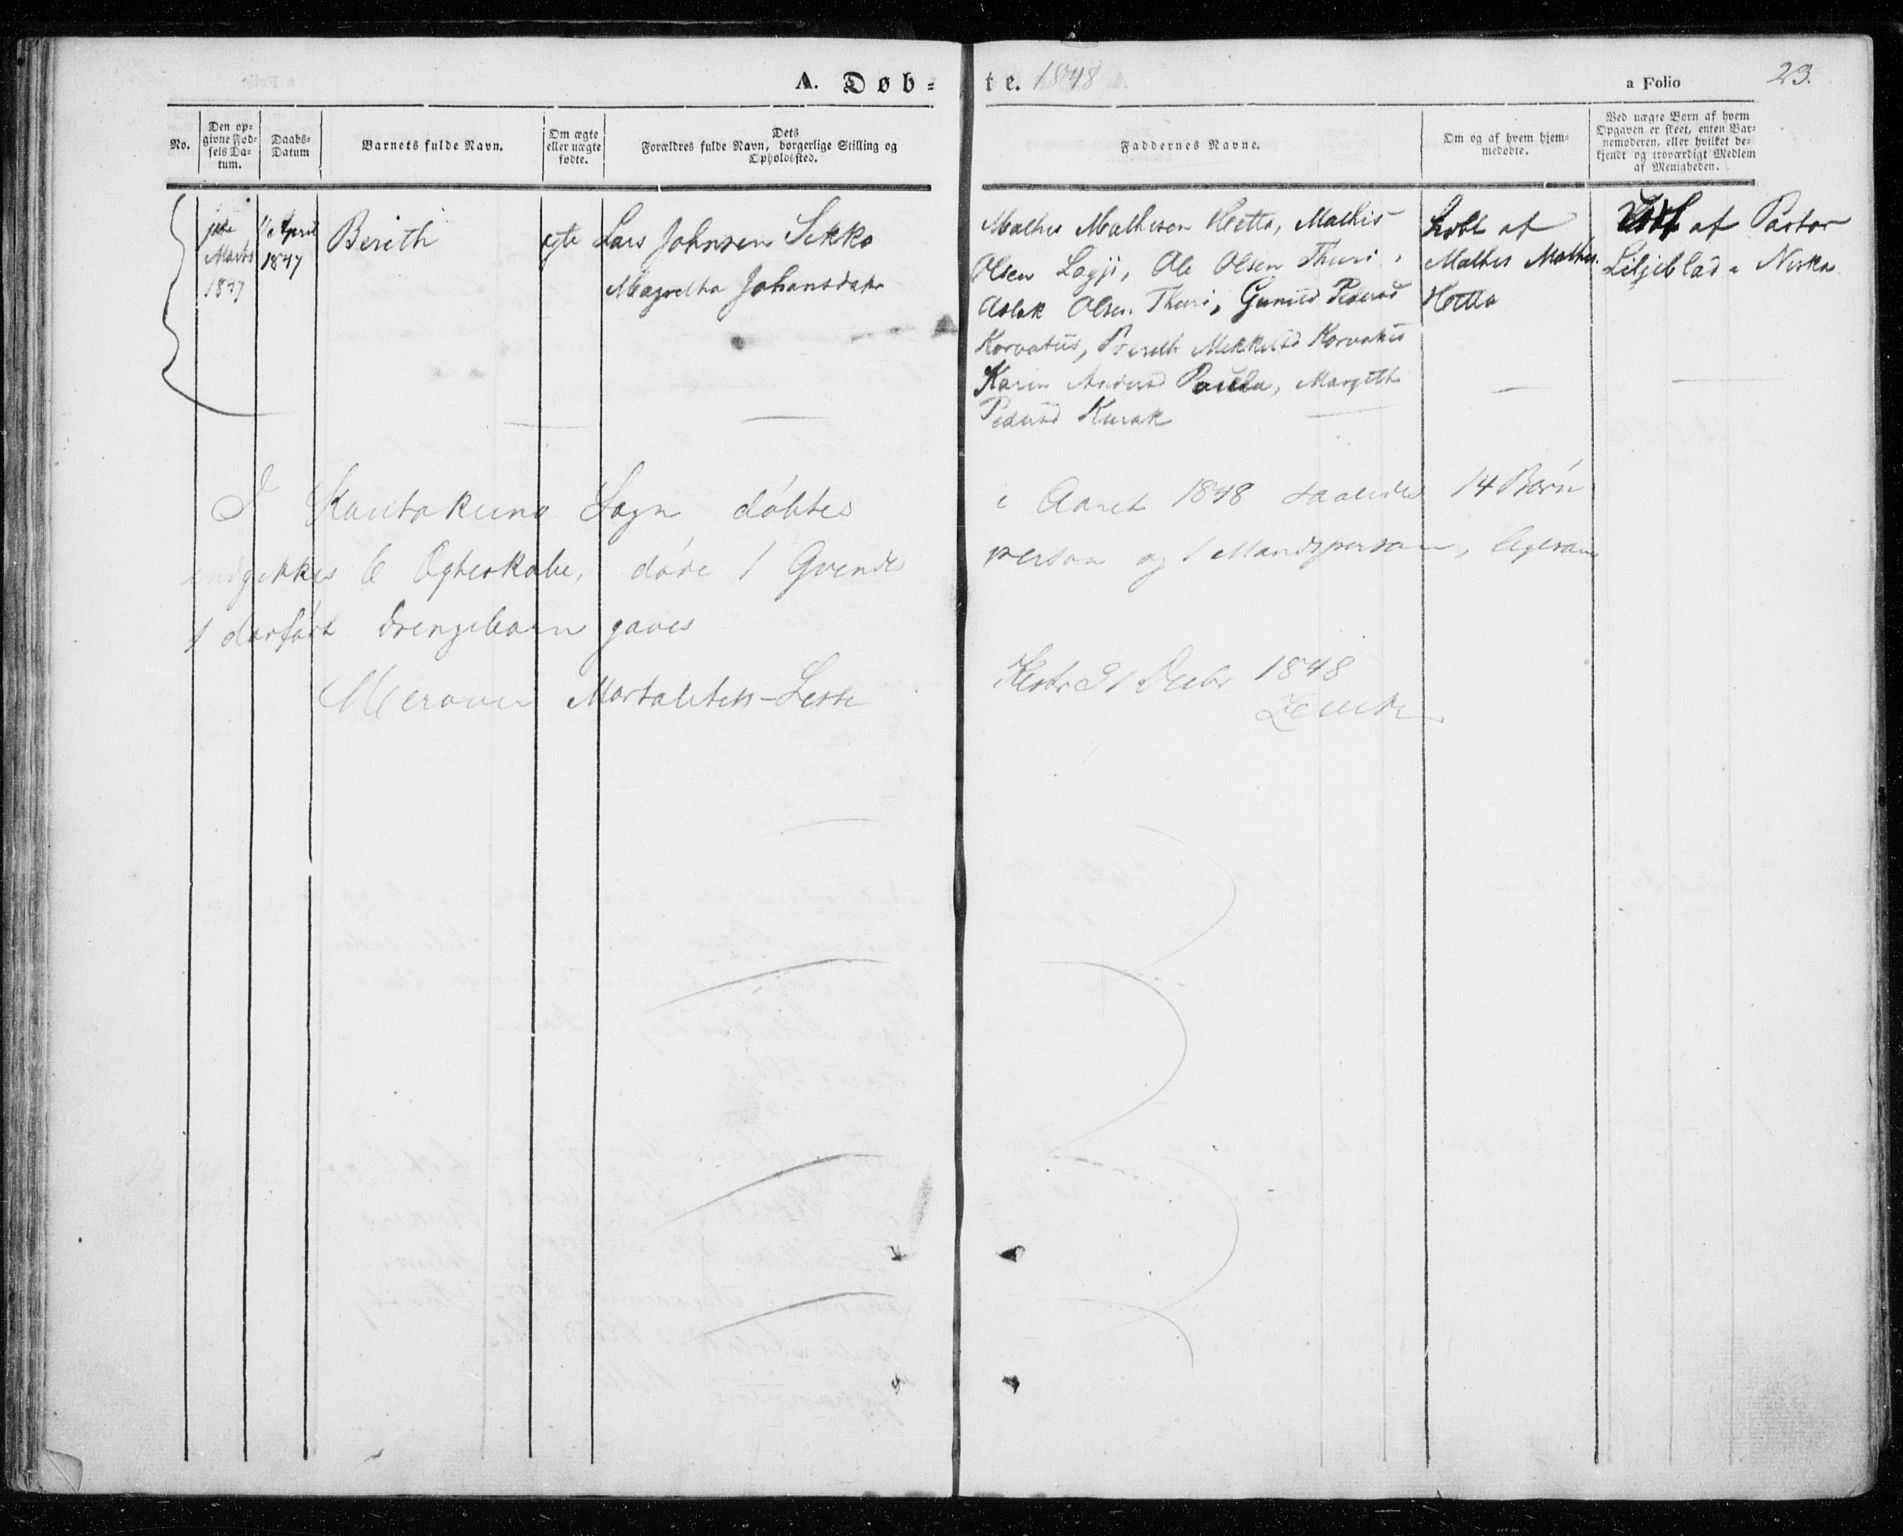 A. Døb-
te. 1848
a Folio 23.
No.
Den op-
givne Fød-
sels Da-
tum.
Daabs-
Datum
Barnets fulde Navn.
Om ægte
eller uægte
fødte.
Dets
Forældres fulde Navn, borgerlige Stilling og
Opholdssted.
Faddernes Navne.
Om og af hvem hjem-
medøbte.
Ved uægte Børn af hvem
Opgaven er skeet, enten Bar-
nemoderen, eller hvilket be-
kjendt og troværdigt Medlem
af Menigheden.
Marts
1847
April
1847
Berith
ægte
Lars Johnsen Sikko
Magretha Johansdatr
Mathis Mathesen Hætta, Mathis
Olsen Logji, Ole Olsen Thuri,
Aslak Olsen Thuri, Gunild Pedersd
Korvatus, Berith Mikkelsd Korvatus
Karin Andersd Pauda, Margith
Pedersd Kurak
Døbt af
Mathis Mathes.
Hætta
af Pastor
Liljeblad i
I Kautokeino Sogn døbtes
i Aaret 1848 saaledes 14 Børn
indgikkes 6 Ægteskabe, døde 1 Qvinde
person og 1 Mandsperson, ligesom
1 dødfødt Drengebarn gaves
Herover Mortalitets-Liste
31 Decbr 1848